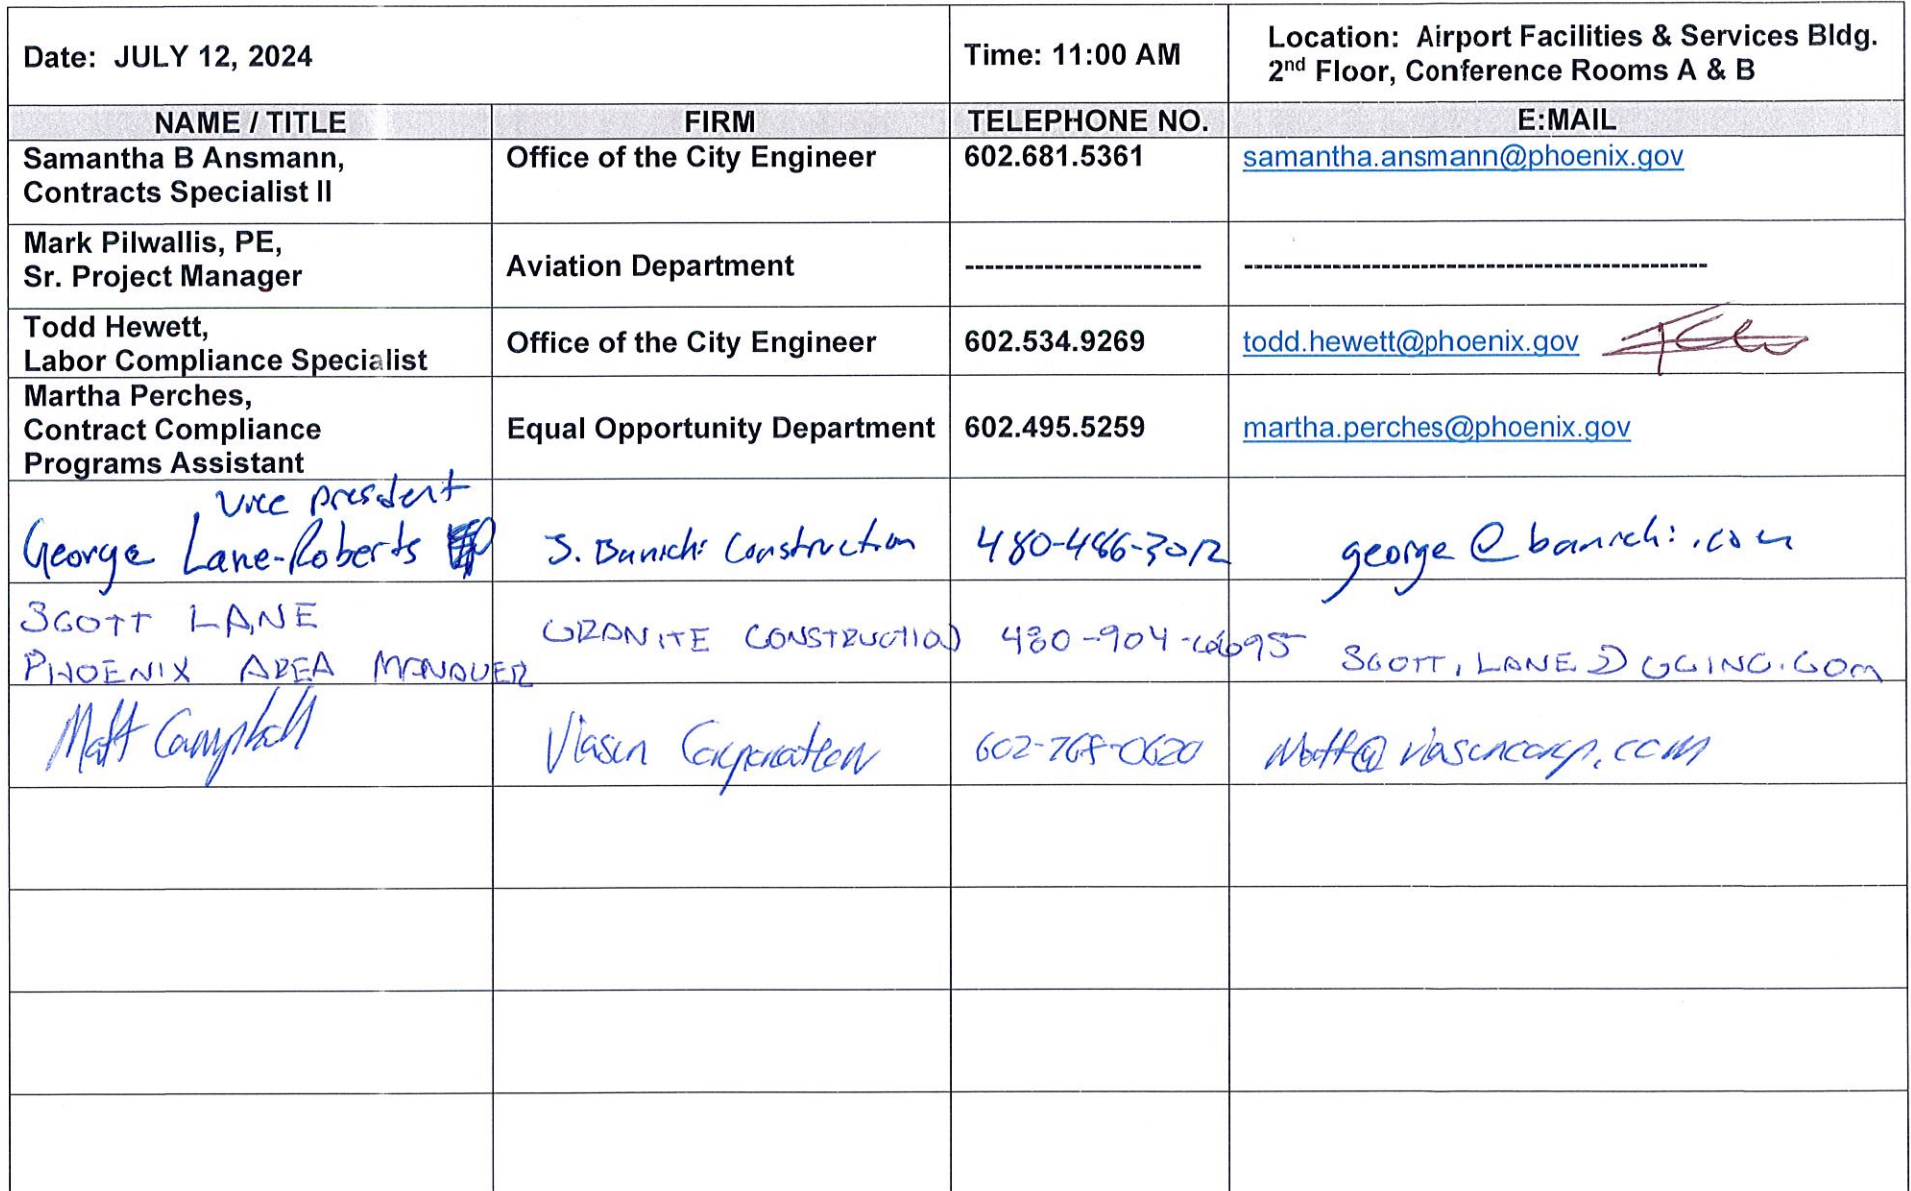 Date: JULY 12, 2024 Time: 11:00 AM Location: Airport Facilities & Services Bldg.
2nd Floor, Conference Rooms A & B
NAME / TITLE FIRM TELEPHONE NO. E:MAIL
Samantha B Ansmann, Office of the City Engineer 602.681.5361 samantha.ansmann@phoenix.gov
Contracts Specialist II
Mark Pilwallis, PE,
Sr. Project Manager Aviation Department ------------------------ -----------------------------------------------
Todd Hewett,
Labor Compliance Specialist Office of the City Engineer 602.534.9269 todd.hewett@phoenix.gov
Martha Perches,
Contract Compliance Equal Opportunity Department 602.495.5259 martha.perches@phoenix.gov
Programs Assistant
Vice president
George Lane-Roberts J. Banicki Construction 480-486-3012 george@banicki.com
SCOTT LANE GRANITE CONSTRUCTION 480-904-6695 SCOTT.LANE@GCINC.COM
PHOENIX AREA MANAGER
Matt Campbell Viasun Corporation 602-768-0620 Matt@viasuncorp.com